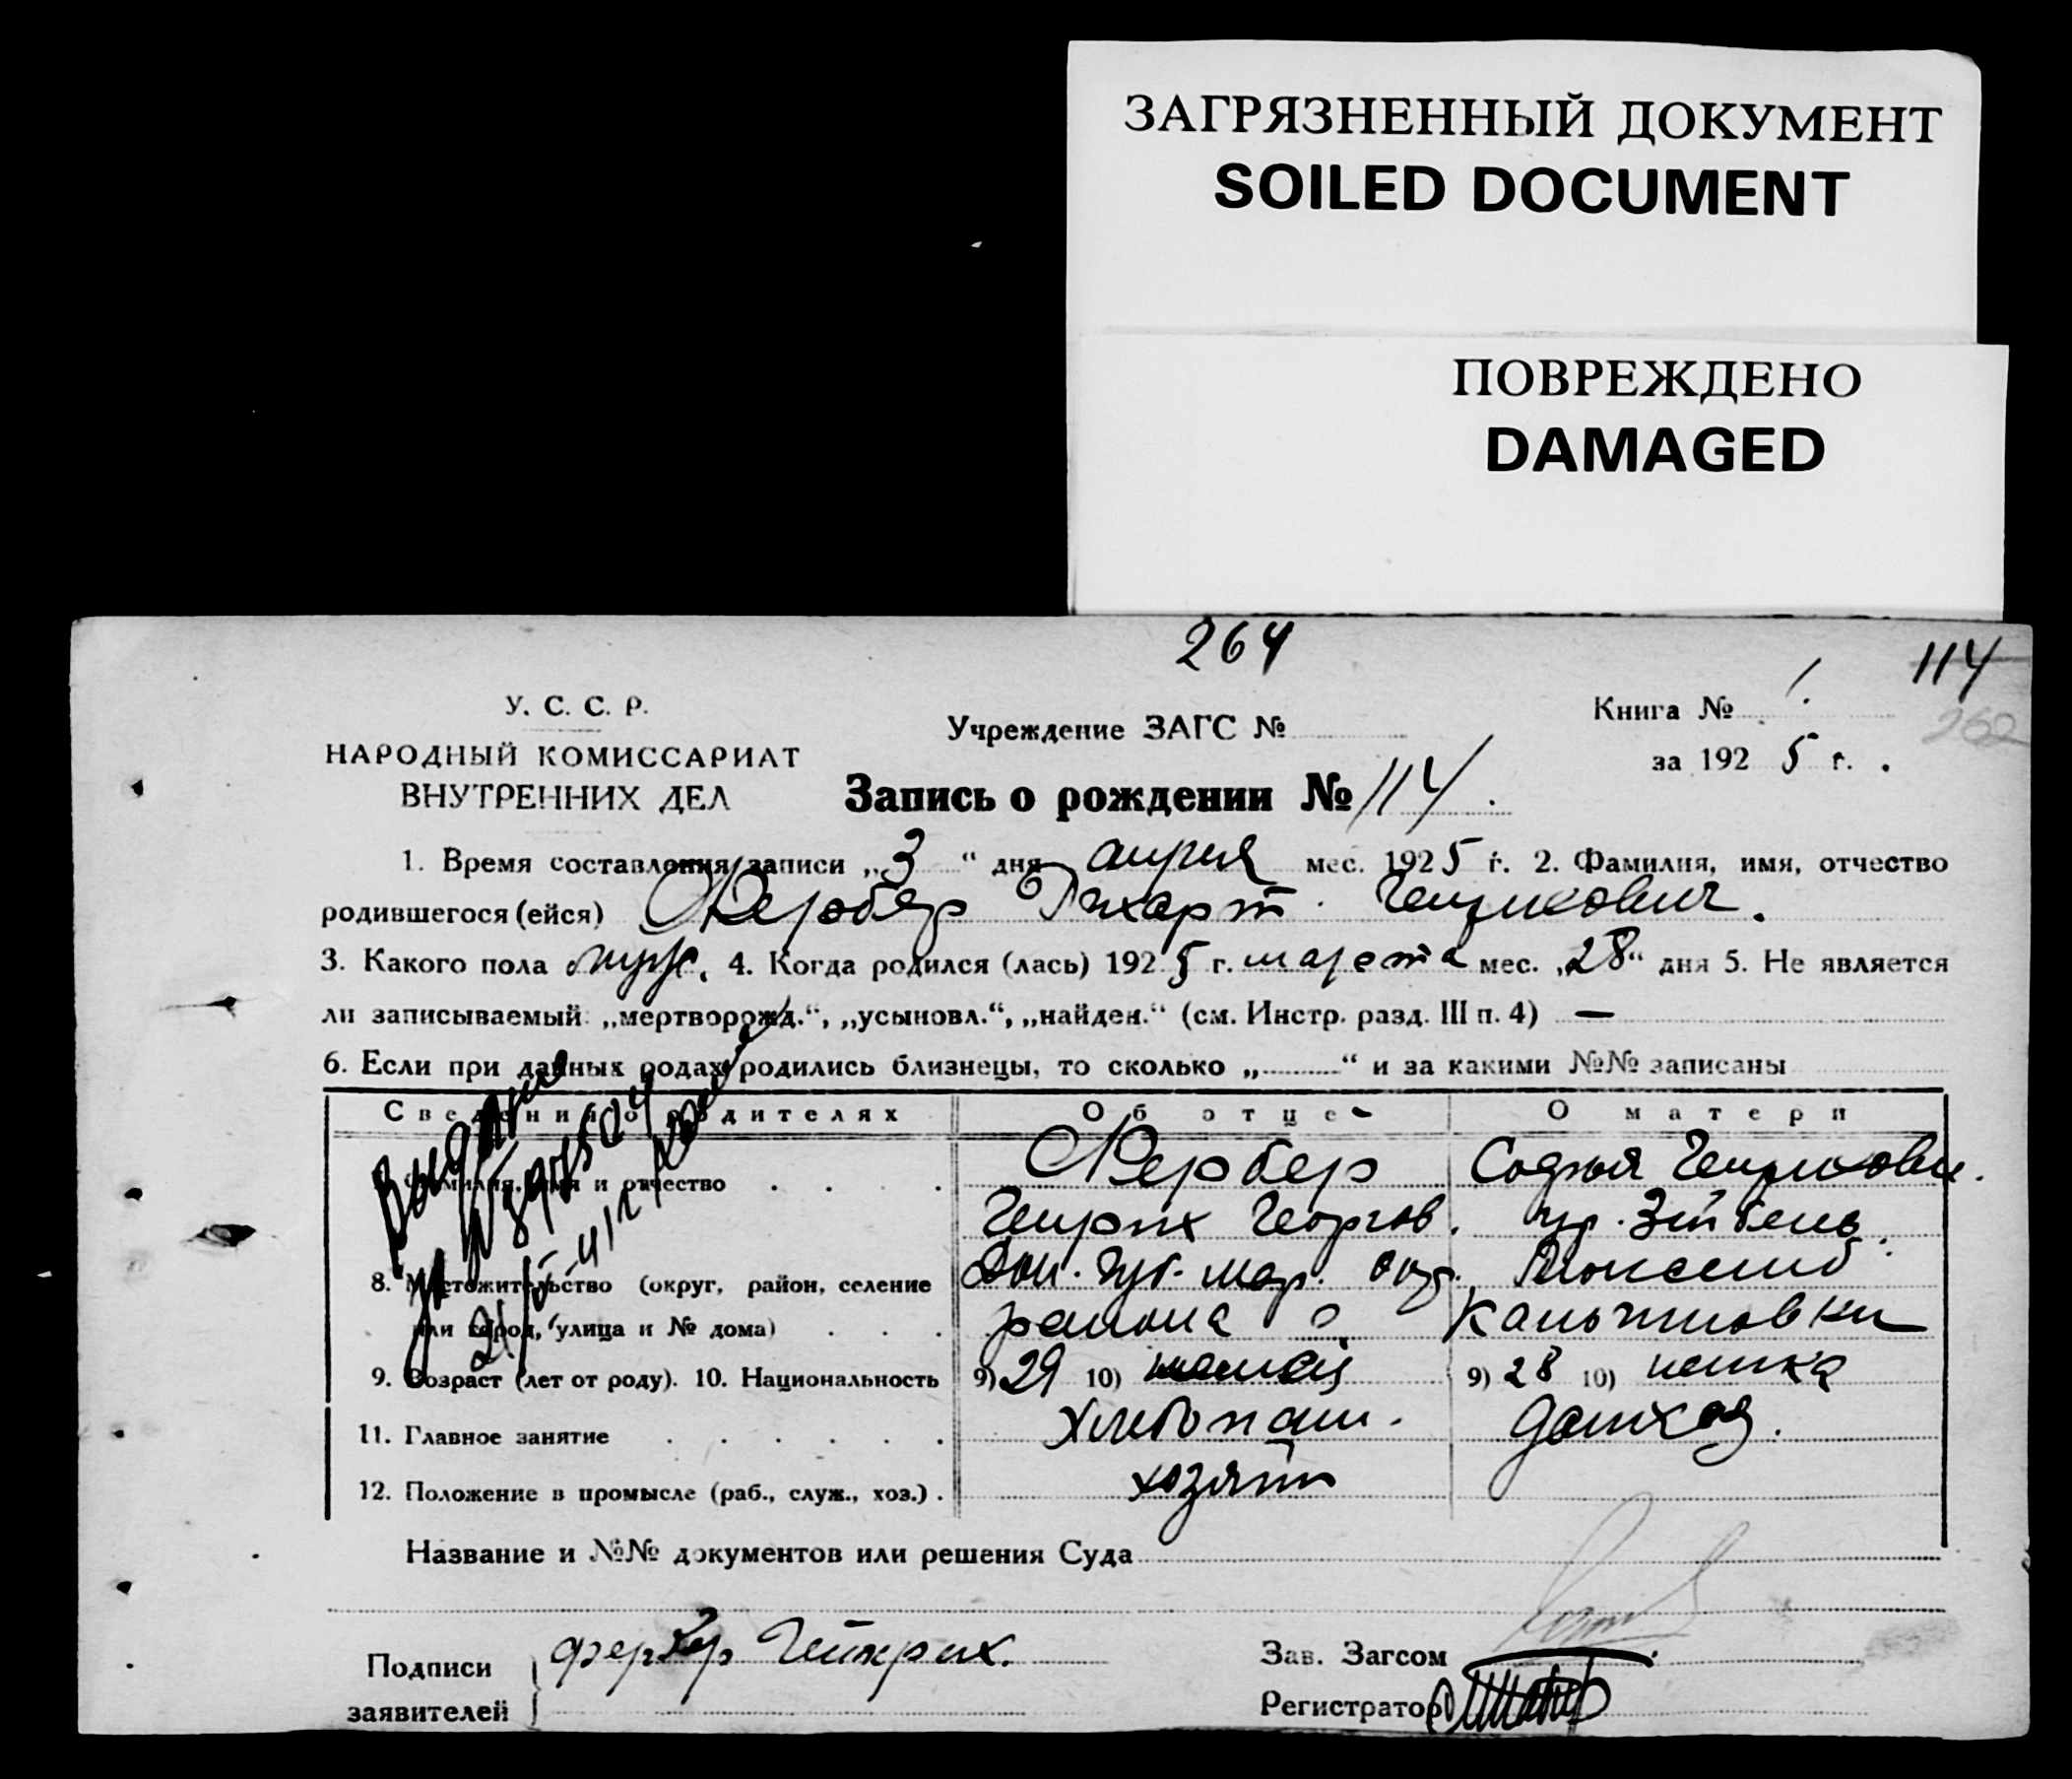 ЗАГРЯЗНЕННЫЙ ДОКУМЕНТ
SOILED DOCUMENT
ПОВРЕЖДЕНО
DAMAGED
264
114
У. С. С. Р.
НАРОДНЫЙ КОМИССАРИАТ
ВНУТРЕННИХ ДЕЛ
Учреждение ЗАГС №
Книга № 1.
262
за 1925 г.
Запись о рождении № 114
1. Время составления записи „3“ дня апреля мес. 1925 г. 2. Фамилия, имя, отчество
родившегося (ейся) Фербер Рихарт Генрикович.
3. Какого пола муж. 4. Когда родился (лась) 1925 г. марта мес. „28“ дня 5. Не является
ли записываемый: „мертворожд.“, „усыновл.“, „найден.“ (см. Инстр. разд. III п. 4) —
6. Если при данных родах родились близнецы, то сколько „ “ и за какими №№ записаны
Сведения о родителях Об отце О матери
Фамилия, имя и отчество Фербер Софья Генриковн.
Генрих Георгов. ур. Зейбель
8. Местожительство (округ, район, селение Дон. Губ. Мар. окр. Люксемб.
или город, улица и № дома) района с. Кальчиновки
9. Возраст (лет от роду). 10. Национальность 9) 29 10) немец 9) 28 10) немка
11. Главное занятие Хлебопаш. домхоз.
12. Положение в промысле (раб., служ., хоз.) хозяин
Название и №№ документов или решения Суда
Подписи Фербер Гейнрих.
заявителей
Зав. Загсом
Регистратор